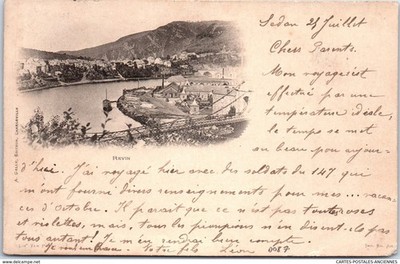 Sedan 25 Juillet
Chers Parents.
Mon voyage s'est
effectué par une
température idéale,
le temps se met
au beau pour aujour-
HAVIN
d'hui. J'ai voyagé hier avec des soldats du 147 qui
m'ont fourni divers renseignements pour mes... vacan-
ces d'Octobre. Il paraît que ce n'est pas toutes roses
et violettes, mais, tous les pioupious n'en disent-ils pas
tous autant! Je m'en rendrai bien compte.
Votre fils Léon
0087
https://www.delcampe.net
CARTES-POSTALES-ANCIENNES